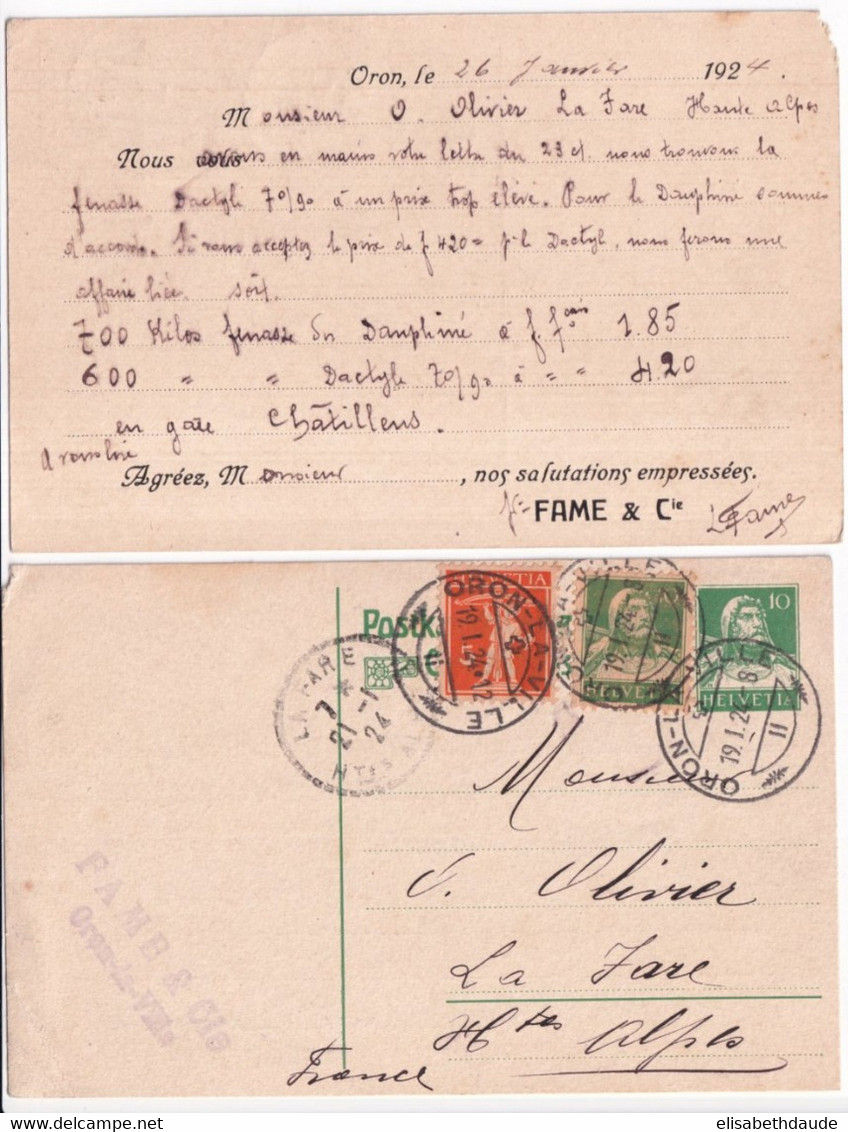 Oron, le 26 Janvier 1924.
Monsieur O. Olivier La Fare Haute Alpes
Nous vous avons en mains votre lettre du 23 ct. nous trouvons la
fenasse Dactyle 70/90 à un prix trop élevé. Pour le Dauphiné sommes
d'accord. Si vous acceptez le prix de f 420= p. le Dactyl, nous ferons une
affaire liée. soit.
700 Kilos fenasse du Dauphiné à f. fçais 1.85
600 " " Dactyle 70/90 à " " 4.20
en gare Châtillens.
A vous lire
Agréez, Monsieur, nos salutations empressées.
FAME & Cie
Fame
Postk
HELVETIA
5
ORON-LA-VILLE
19.I.24-12
HELVETIA
ORON-LA-VILLE
II
10
HELVETIA
ORON-LA-VILLE
19.I.24-8
II
LA FARE
21 -1
24
HTES AL
Monsieur
O. Olivier
La Fare
Htes Alpes
France
FAME & Cie
Oron-la-Ville
elisabethdaude